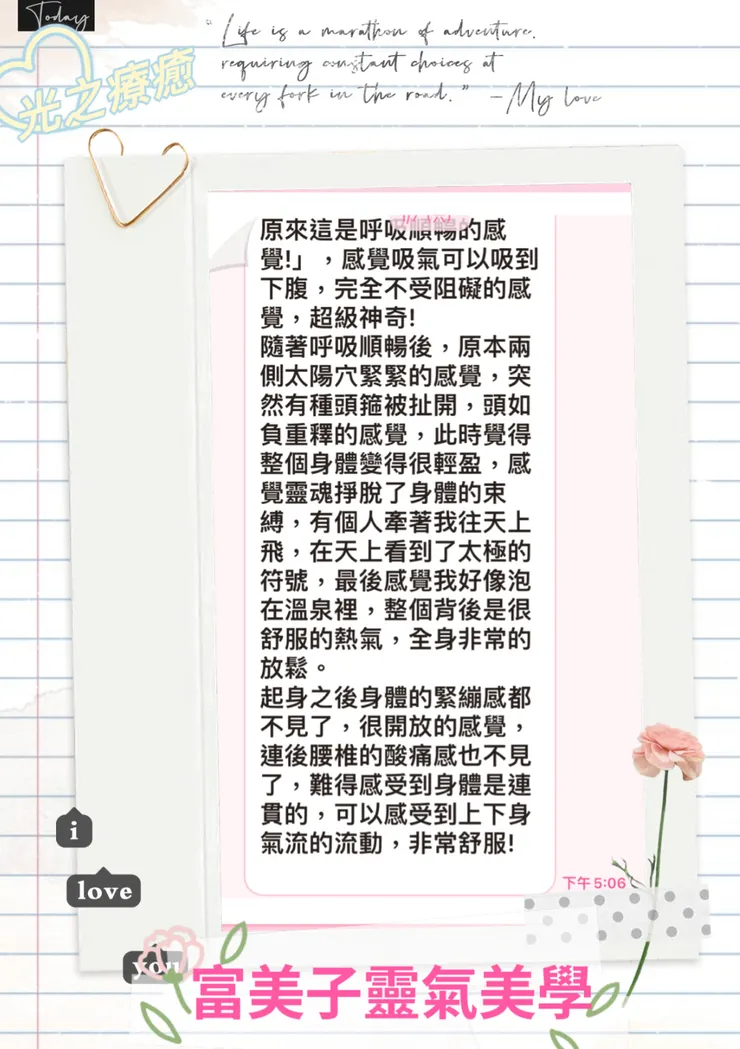 Today
"Life is a marathon of adventure,
requiring constant choices at
every fork in the road." -My love
光之療癒
原來這是呼吸順暢的感
覺!」，感覺吸氣可以吸到
下腹，完全不受阻礙的感
覺，超級神奇!
隨著呼吸順暢後，原本兩
側太陽穴緊緊的感覺，突
然有種頭箍被扯開，頭如
負重釋的感覺，此時覺得
整個身體變得很輕盈，感
覺靈魂掙脫了身體的束
縛，有個人牽著我往天上
飛，在天上看到了太極的
符號，最後感覺我好像泡
在溫泉裡，整個背後是很
舒服的熱氣，全身非常的
放鬆。
起身之後身體的緊繃感都
不見了，很開放的感覺，
連後腰椎的酸痛感也不見
了，難得感受到身體是連
貫的，可以感受到上下身
氣流的流動，非常舒服!
下午5:06
i
love
you
富美子靈氣美學